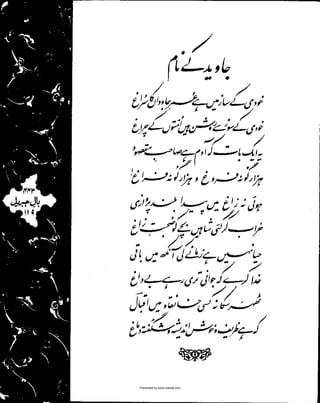 جاوید کے نام
خودی کے ساز میں ہے عمرِ جاوداں کا سُراغ
خودی کے سوز سے روشن ہیں اُمتوں کے چراغ
یہ ایک بات کہ آدم ہے صاحبِ مقصود
ہزار گونہ فروغ و ہزار گونہ فراغ
ہوئی نہ زاغ میں پیدا بلند پروازی
خراب کر گئی شاہیں بچے کو صحبتِ زاغ
حیا نہیں ہے زمانے کی آنکھ میں باقی
خدا کرے کہ جوانی تری رہے بے داغ
ٹھہر سکا نہ کسی خانقاہ میں اقبالؔ
کہ ہے ظریف و خوش اندیشہ و شگفتہ دماغ
بالِ جبریل
Presented by www.ziaraat.com